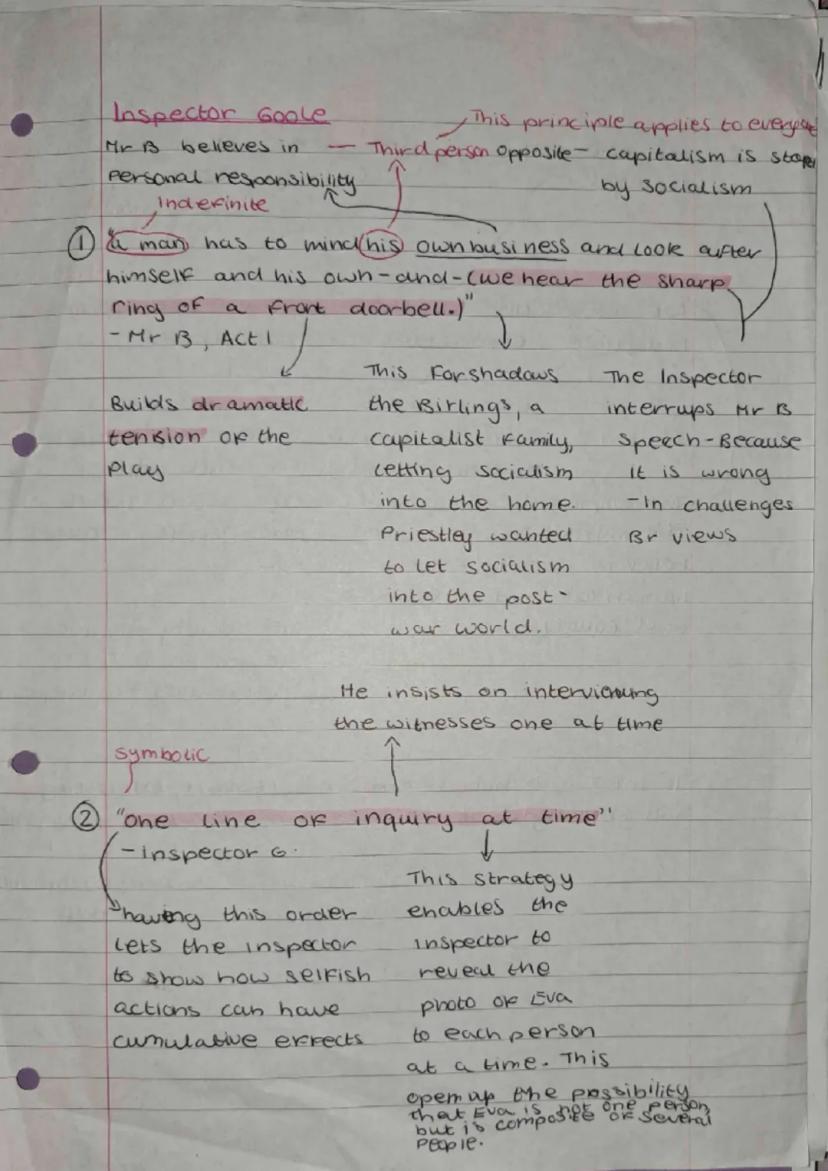 Inspector Goole
This principle applies to everyone
Mr B believes in — Third person opposite - capitalism is stop
personal responsibility
by socialism
Indefinite
① "a man has to mind his own business and look after
himself and his own-and-(we hear the sharp
ring of a front doorbell.)"
- Mr B, Act 1
Builds dramatic
tension of the
play
This Forshadows
the Birlings, a
capitalist family,
letting socialism
into the home.
Priestley wanted
to let socialism
into the post-
war world.
The Inspector
interrupts Mr B
speech-Because
it is wrong
-In challenges
Br views
He insists on interviewing
the witnesses one at time
symbolic
② "one line of inquiry at time"
- inspector G.
having this order
lets the inspector
to show how selfish
actions can have
cumulative effects
This strategy
enables the
inspector to
reveal the
photo of Eva
to each person
at a time. This
open up the possibility
that Eva is not one person
but is composite of several
people.